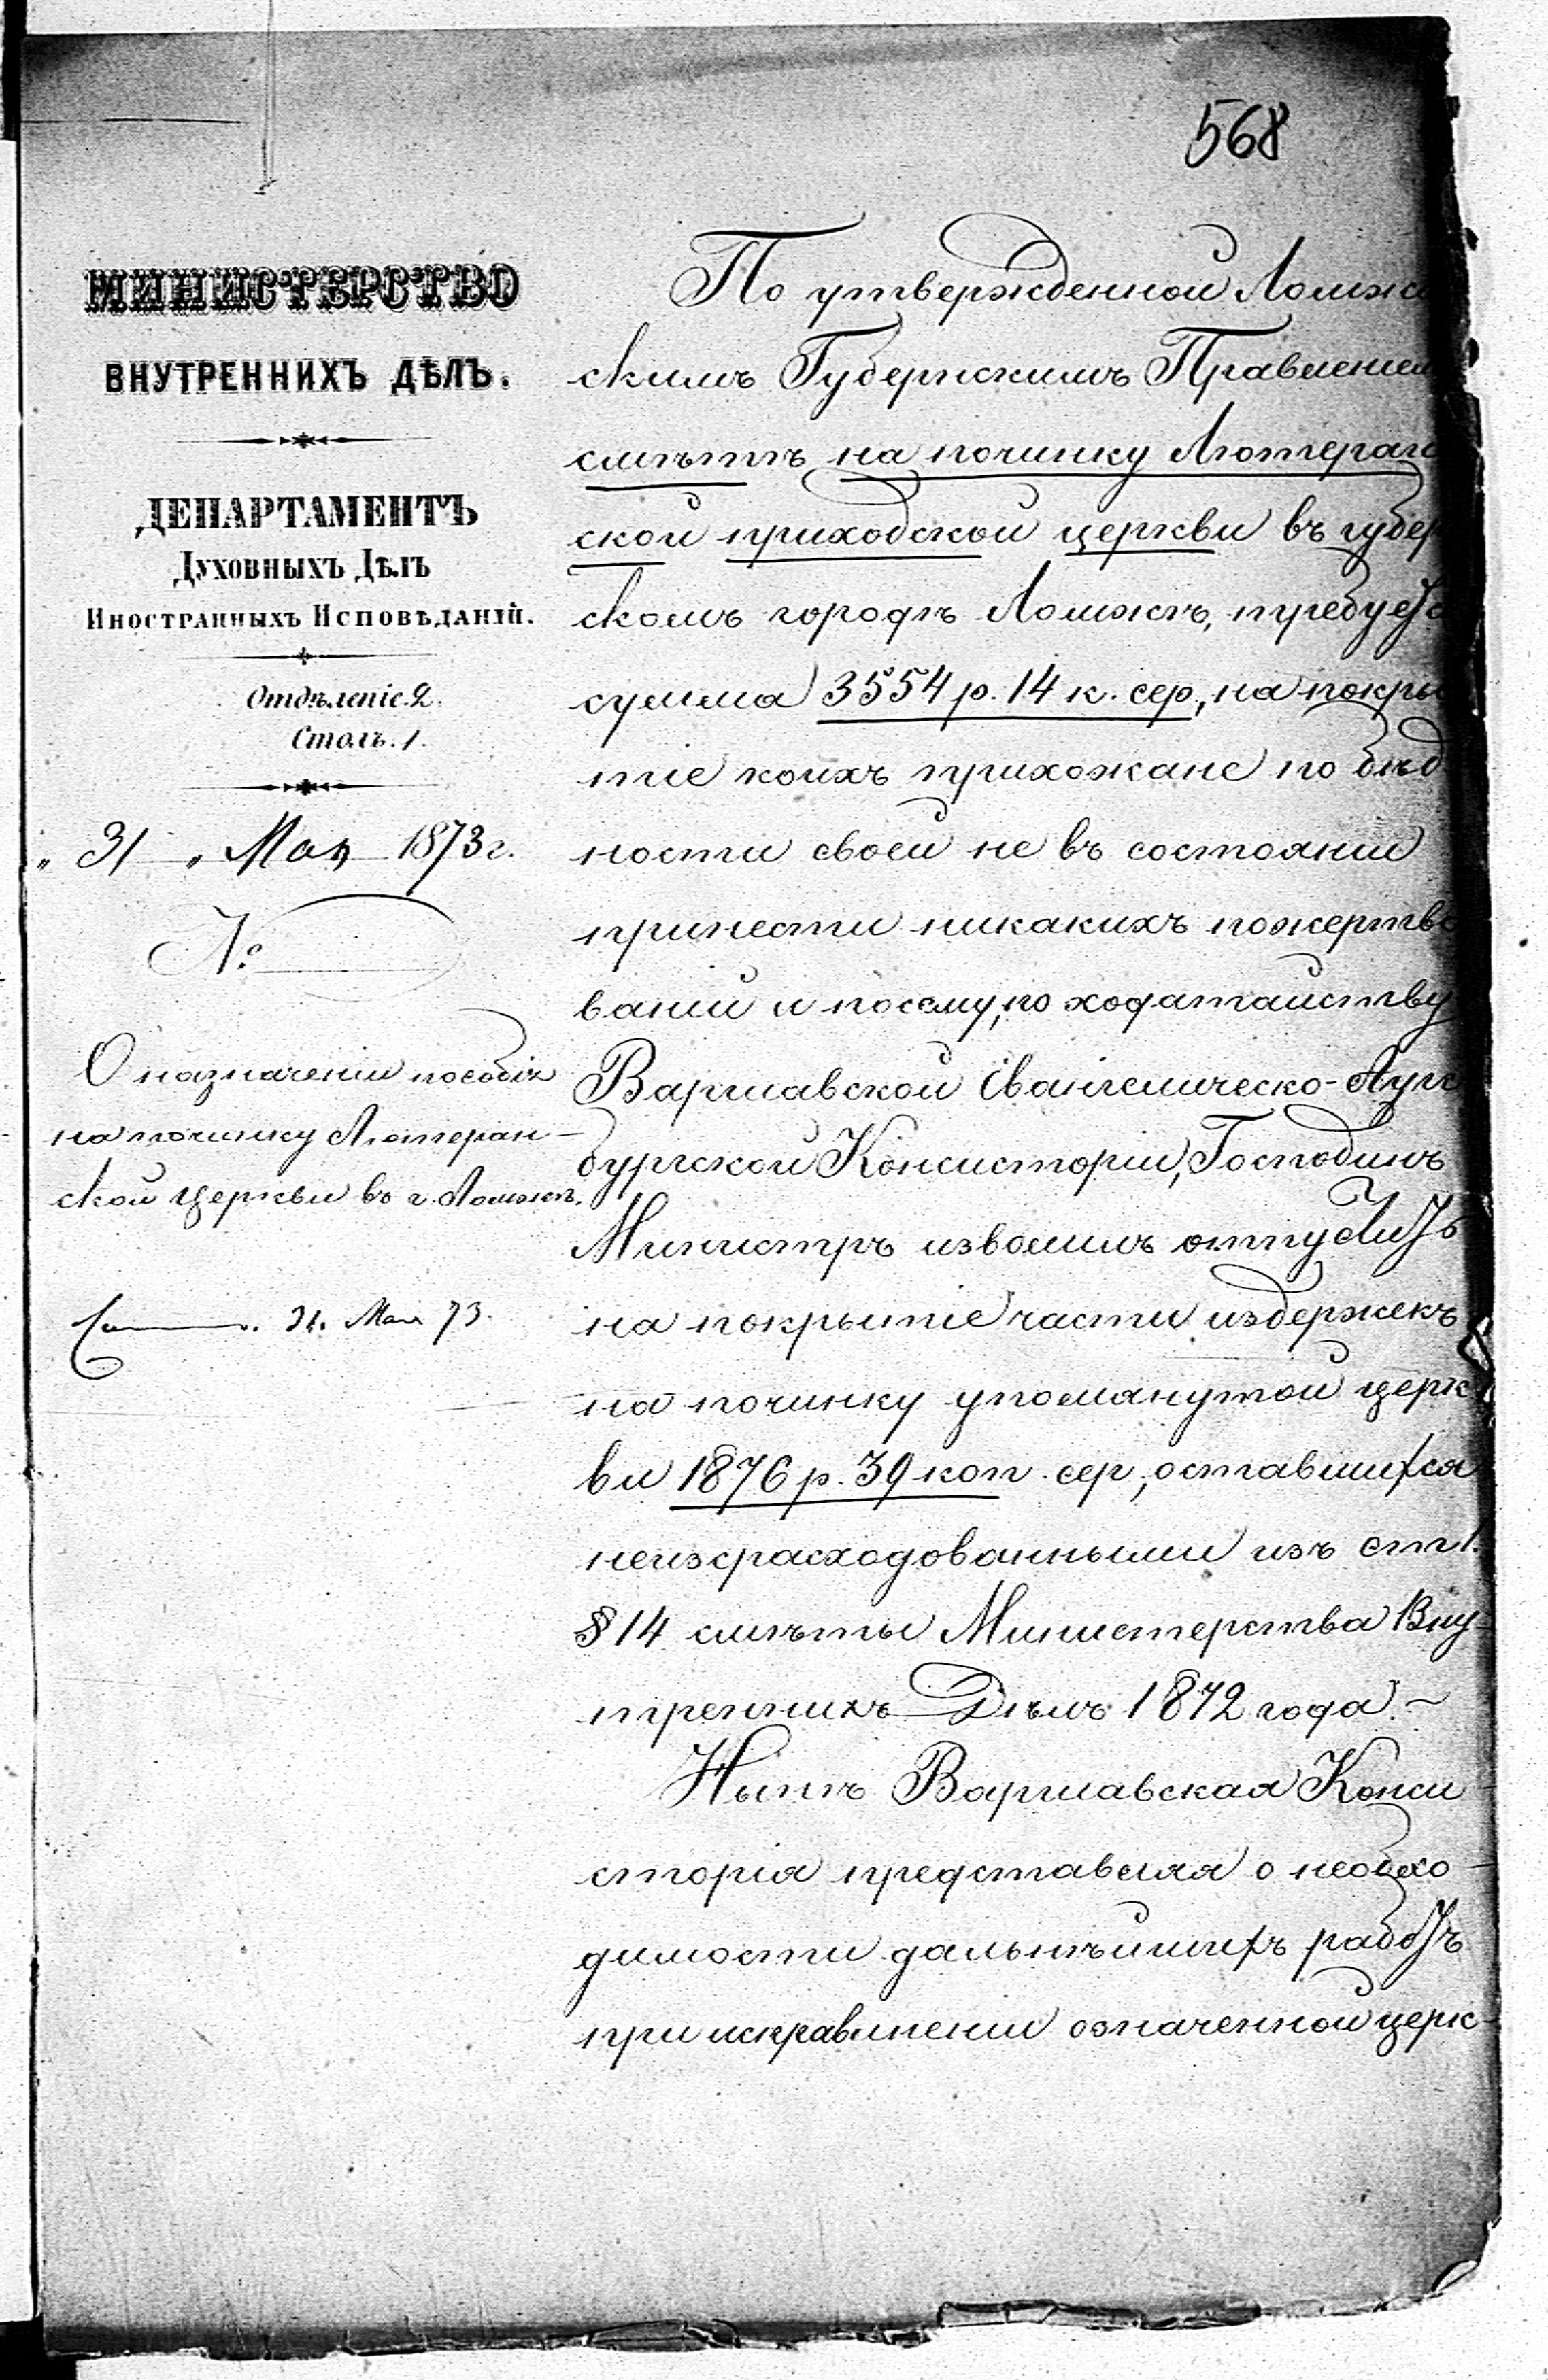 568
МИНИСТЕРСТВО
ВНУТРЕННИХЪ ДѢЛЪ.
ДЕПАРТАМЕНТЪ
ДУХОВНЫХЪ ДѢЛЪ
ИНОСТРАННЫХЪ ИСПОВѢДАНІЙ.
Отдѣленіе 2.
Столъ. 1.
„ 31 „ Мая 1873 г.
№
О назначеніи пособія
на починку Лютеран-
ской церкви въ г. Ломжѣ.
31. Мая 73.
По утвержденной Ломж
скимъ Губернскимъ Правленіем
смѣтѣ на починку Лютеран
ской приходской церкви въ губер
скомъ городѣ Ломжѣ, требуетс
сумма 3554 р. 14 к. сер., на покры
тіе коихъ прихожане по бѣд
ности своей не въ состояніи
принести никакихъ пожертво
ваній и посему, по ходатайству
Варшавской Евангелическо-Аугс
бургской Консисторіи, Господинъ
Министръ изволилъ отпустить
на покрытіе части издержекъ
на починку упомянутой церк
ви 1876 р. 39 коп. сер., оставшихся
неизрасходованными изъ ст. 1.
§ 14 смѣты Министерства Вну-
треннихъ Дѣлъ 1872 года. ~
Нынѣ Варшавская Конси-
сторія представляя о необхо-
димости дальнѣйшихъ работъ
при исправленіи означенной церк-